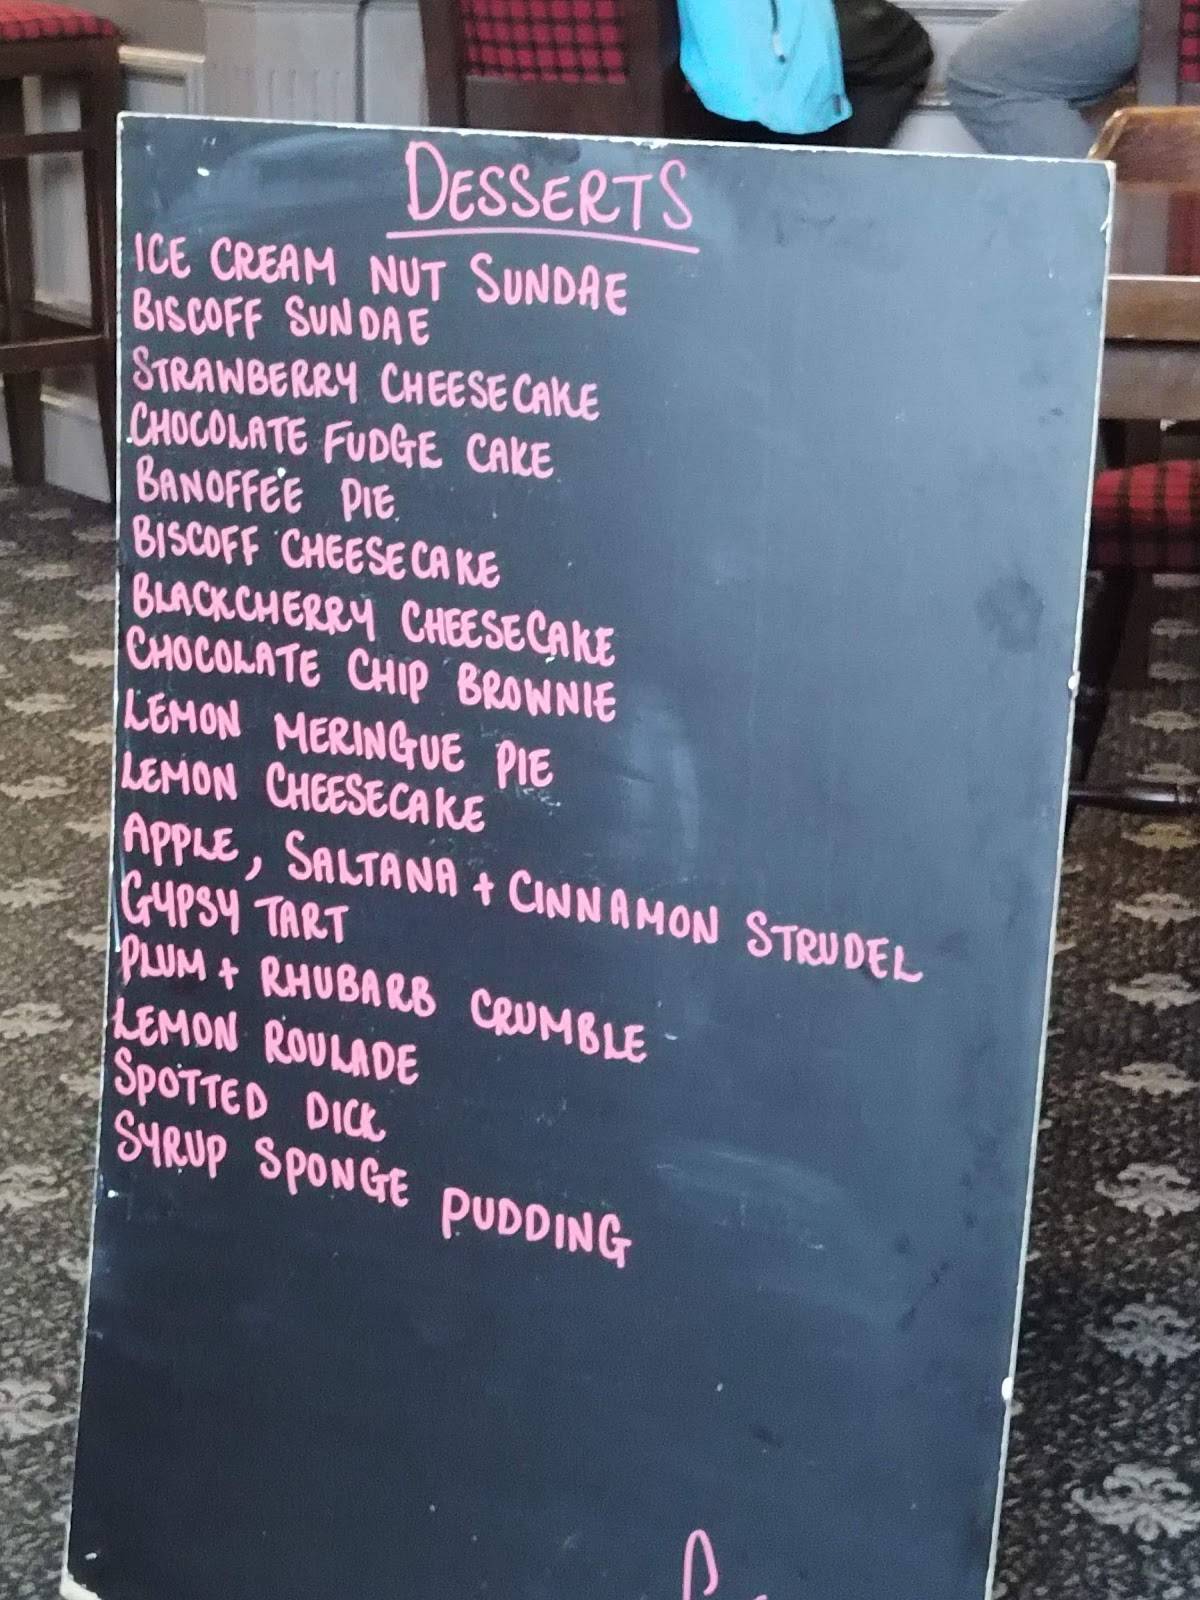 DESSERTS
ICE CREAM NUT SUNDAE
BISCOFF SUNDAE
STRAWBERRY CHEESECAKE
CHOCOLATE FUDGE CAKE
BANOFFEE PIE
BISCOFF CHEESECAKE
BLACKCHERRY CHEESECAKE
CHOCOLATE CHIP BROWNIE
LEMON MERINGUE PIE
LEMON CHEESECAKE
APPLE, SALTANA + CINNAMON STRUDEL
GYPSY TART
PLUM + RHUBARB CRUMBLE
LEMON ROULADE
SPOTTED DICK
SYRUP SPONGE PUDDING